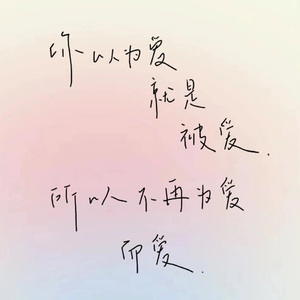 你以为爱
就是
被爱.
所以不再为爱
而爱.